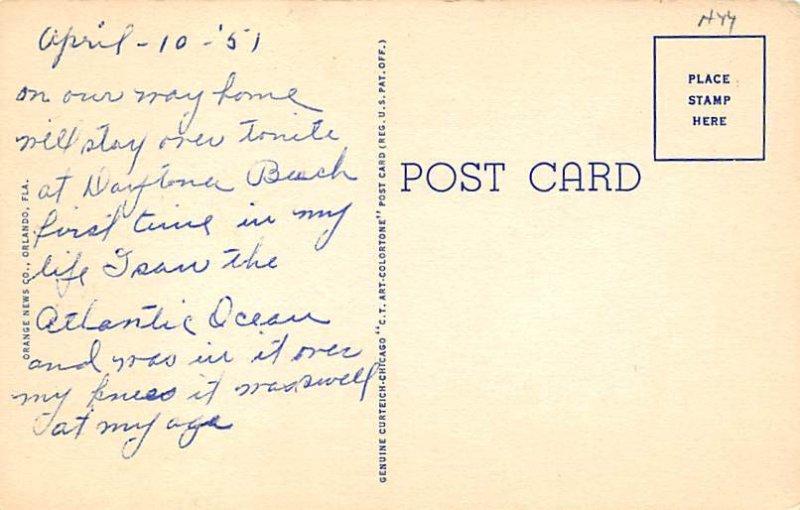 April - 10 - '51
on our way home
will stay over tonite
at Daytona Beach
first time in my
life I saw the
Atlantic Ocean
and was in it over
my knees it was swell
at my age
ORANGE NEWS CO., ORLANDO, FLA.
GENUINE CURTEICH-CHICAGO "C.T. ART-COLORTONE" POST CARD (REG. U.S. PAT. OFF.)
POST CARD
PLACE
STAMP
HERE